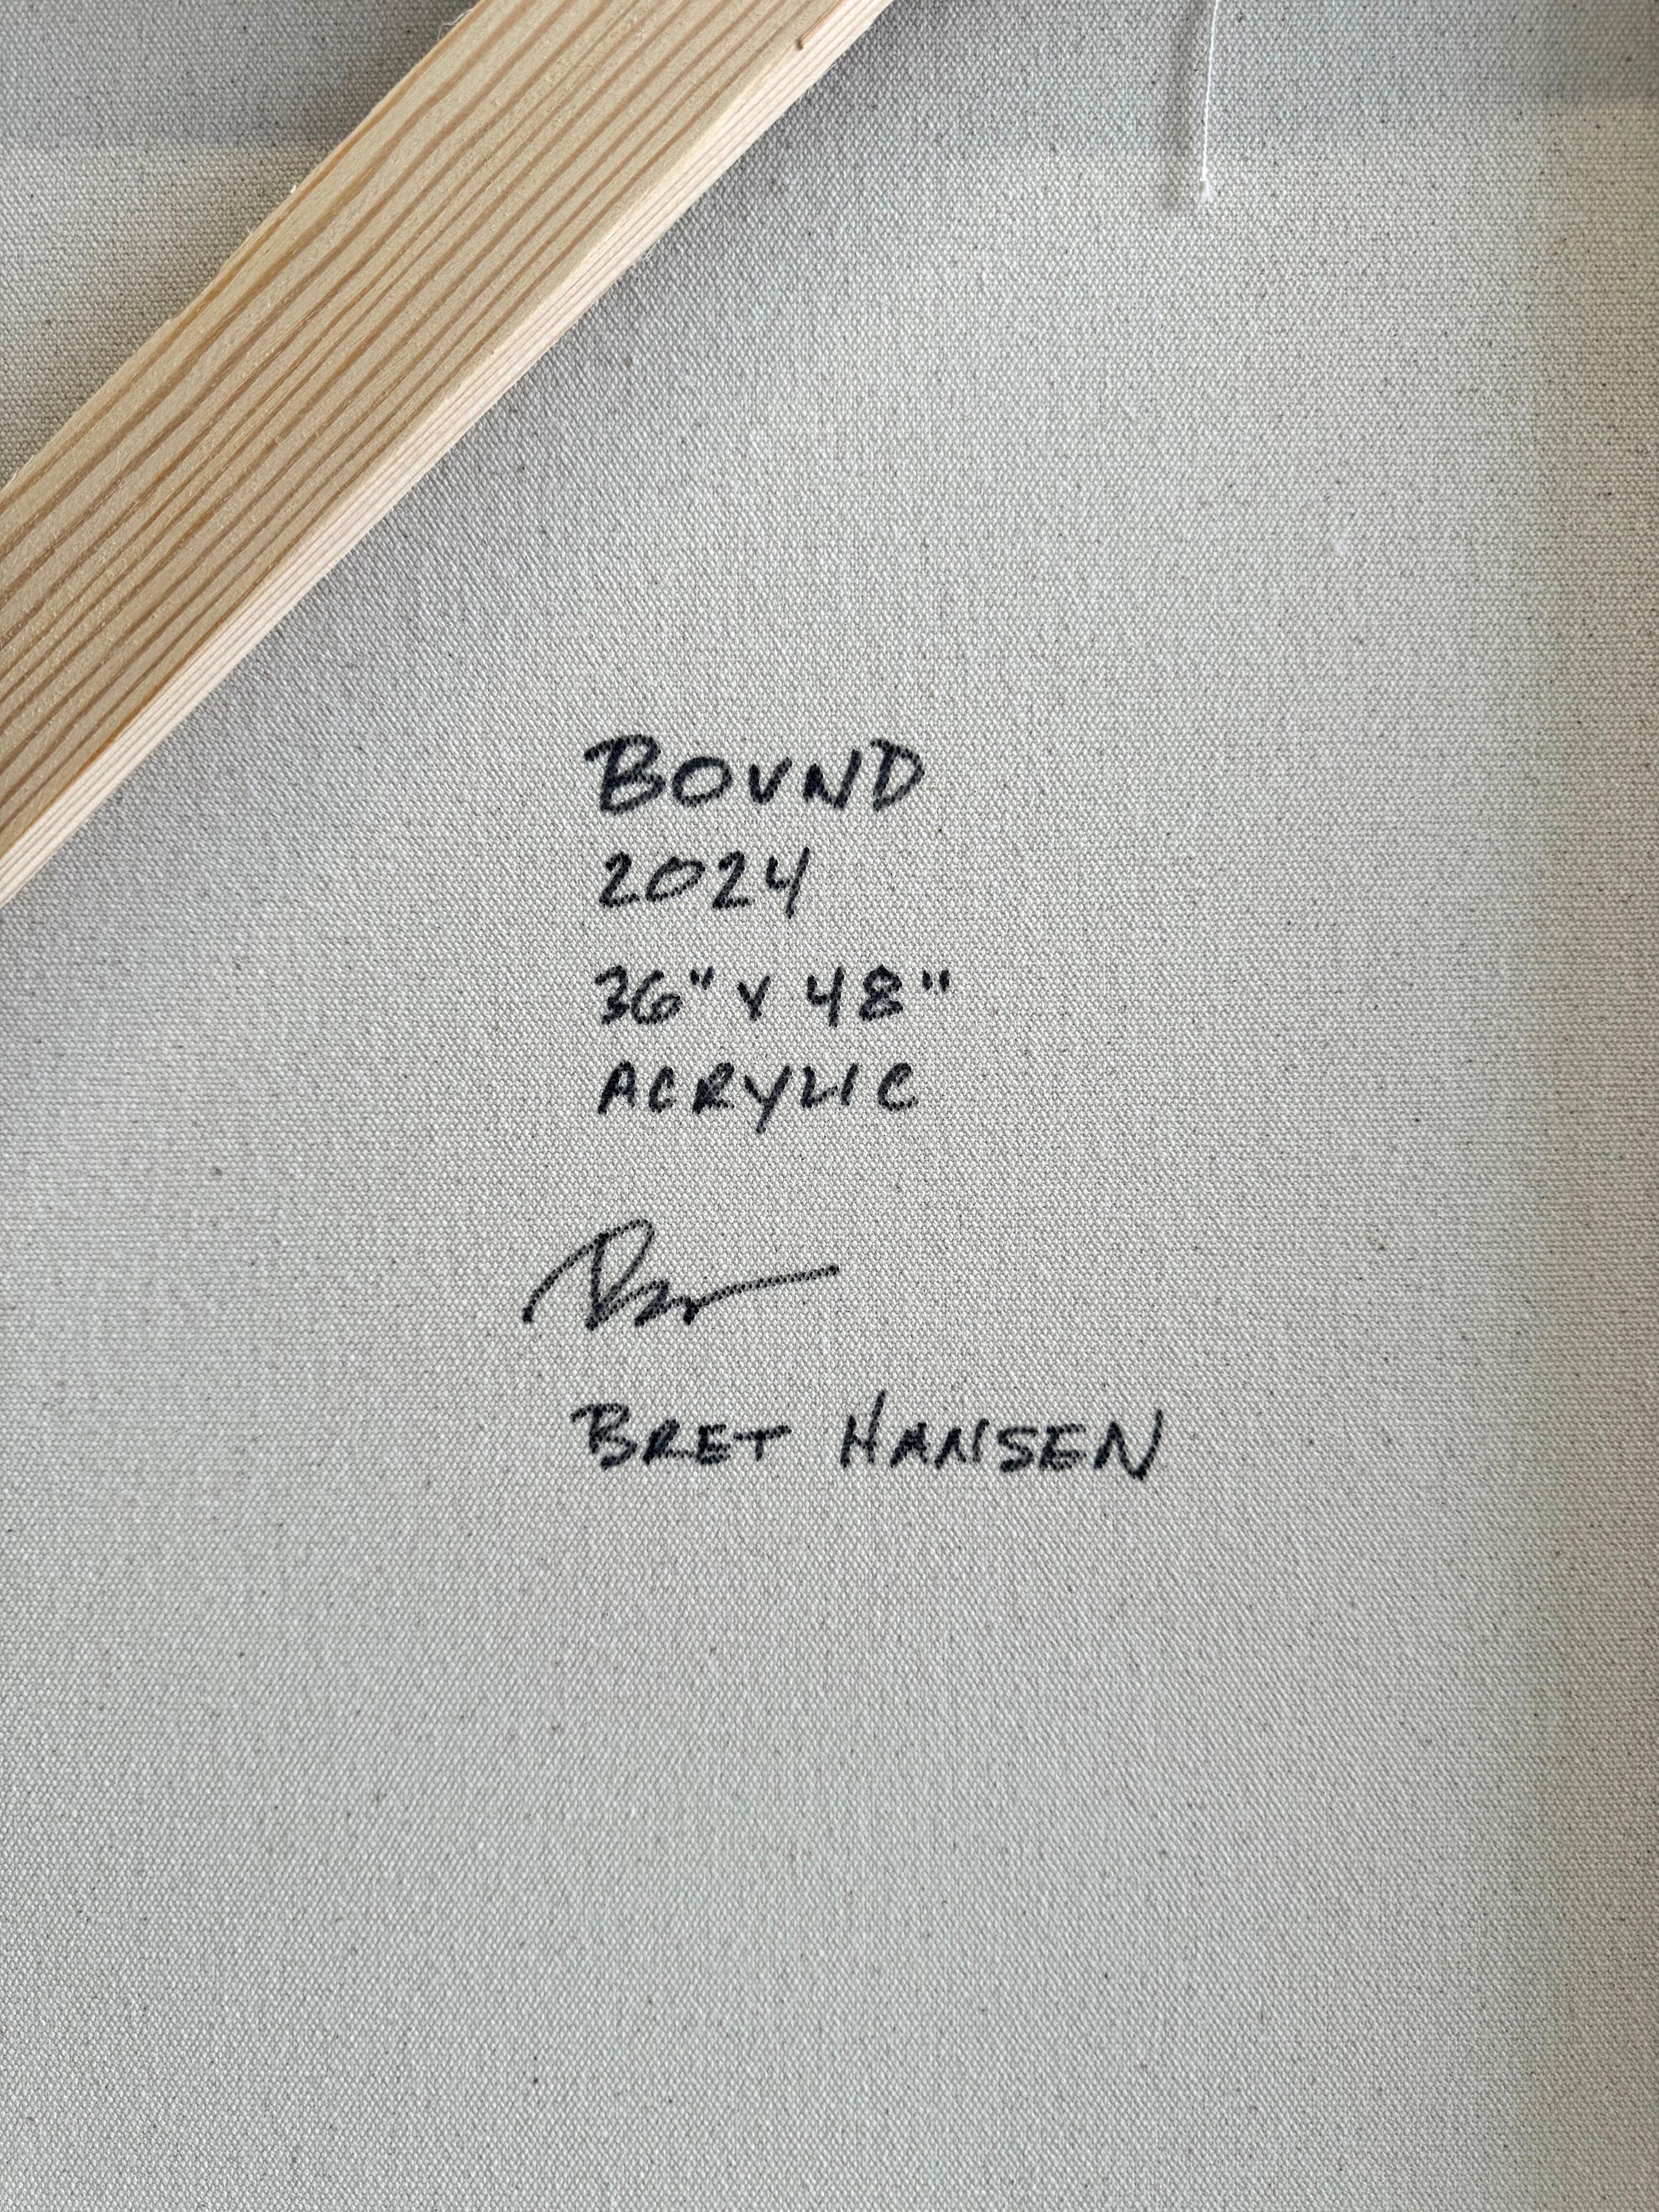 BOUND
2024
36" x 48"
ACRYLIC
BRET HANSEN